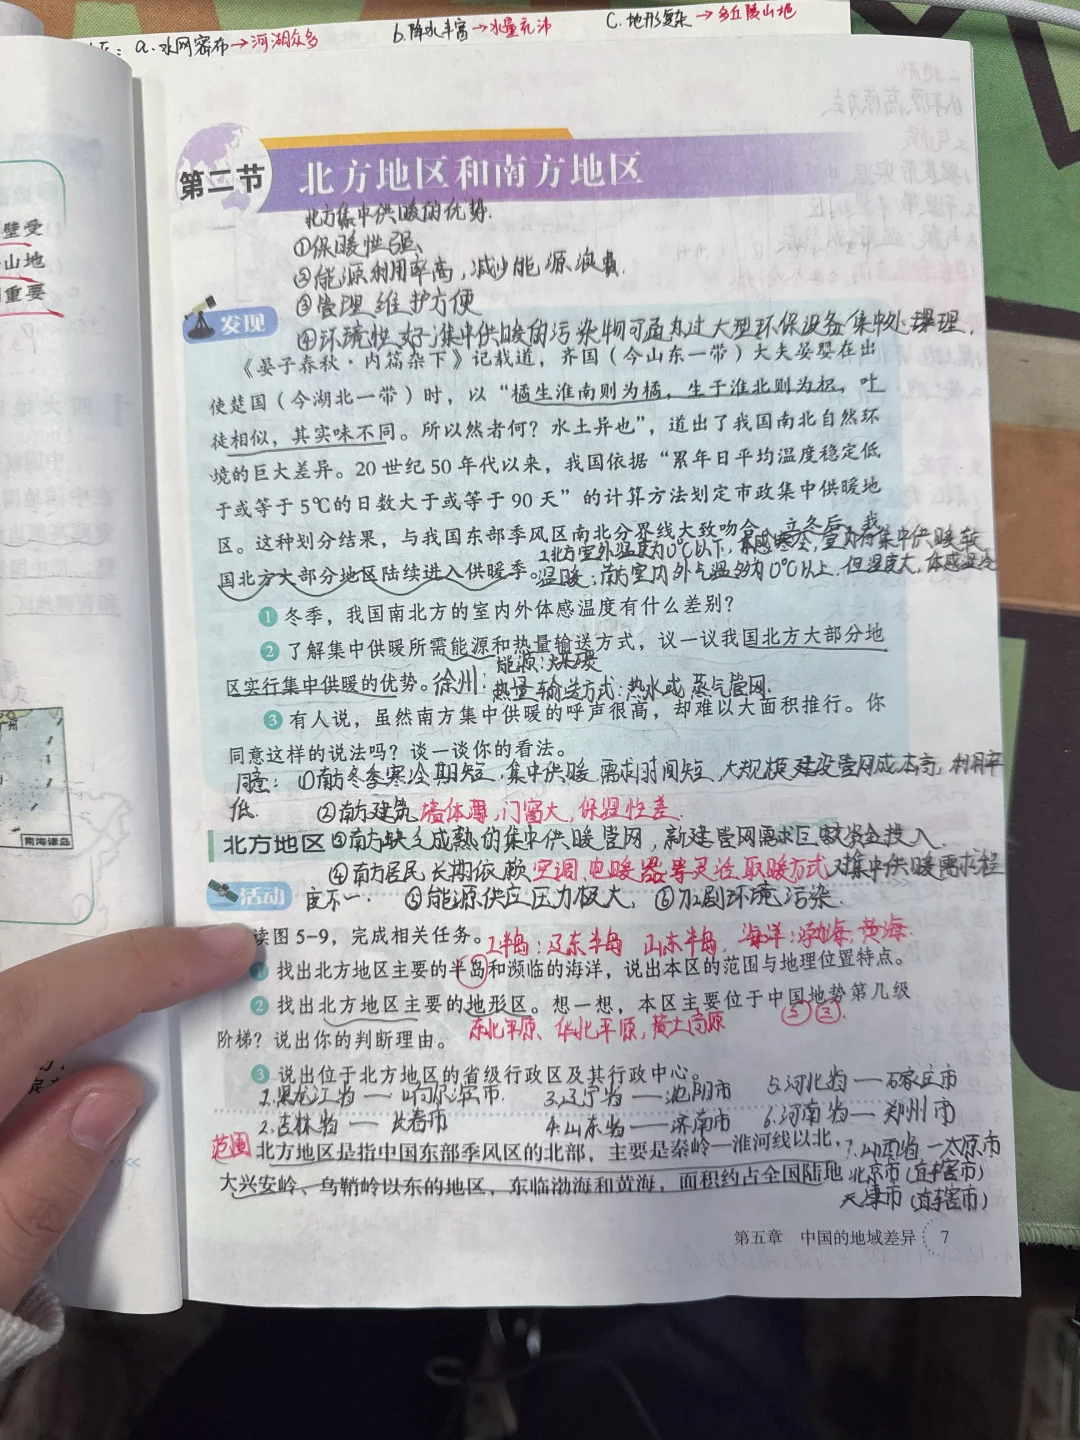 a.水网密布→河湖众多 b.降水丰富→水量充沛 C.地形复杂→多丘陵山地
第二节 北方地区和南方地区
北方集中供暖的优势.
①保暖性强、
②能源利用率高,减少能源浪费.
③管理维护方便
④环境性好:集中供暖的污染物可通过大型环保设备集中处理.
发现
《晏子春秋·内篇杂下》记载道,齐国(今山东一带)大夫晏婴在出
使楚国(今湖北一带)时,以“橘生淮南则为橘,生于淮北则为枳,叶
徒相似,其实味不同。所以然者何?水土异也”,道出了我国南北自然环
境的巨大差异。20世纪50年代以来,我国依据“累年日平均温度稳定低
于或等于5℃的日数大于或等于90天”的计算方法划定市政集中供暖地
区。这种划分结果,与我国东部季风区南北分界线大致吻合。立冬后,我
国北方大部分地区陆续进入供暖季。
1.北方室外温度为0℃以下,体感寒冷,室内有集中供暖较
温暖;南方室内外气温多为0℃以上,但湿度大,体感湿冷
1 冬季,我国南北方的室内外体感温度有什么差别?
2 了解集中供暖所需能源和热量输送方式,议一议我国北方大部分地
能源:煤炭
区实行集中供暖的优势。徐州:热量输送方式:热水或蒸气管网.
3 有人说,虽然南方集中供暖的呼声很高,却难以大面积推行。你
同意这样的说法吗?谈一谈你的看法。
同意:①南方冬季寒冷期短,集中供暖需求时间短,大规模建设管网成本高,利用率
低. ②南方建筑墙体薄,门窗大,保温性差.
北方地区 ③南方缺乏成熟的集中供暖管网,新建管网需求巨额资金投入.
④南方居民长期依赖空调、电暖器等灵活取暖方式对集中供暖需求程
活动 度不一. ⑤能源供应压力极大, ⑥加剧环境污染.
读图5-9,完成相关任务。1.半岛:辽东半岛 山东半岛, 海洋:渤海,黄海.
1 找出北方地区主要的半岛和濒临的海洋,说出本区的范围与地理位置特点。
2 找出北方地区主要的地形区。想一想,本区主要位于中国地势第几级
东北平原、华北平原,黄土高原 ② ③.
阶梯?说出你的判断理由。
3 说出位于北方地区的省级行政区及其行政中心。
1.黑龙江省——哈尔滨市 3.辽宁省——沈阳市 5.河北省——石家庄市
2.吉林省——长春市 4.山东省——济南市 6.河南省——郑州市
范围 北方地区是指中国东部季风区的北部,主要是秦岭—淮河线以北,7.山西省—太原市
大兴安岭、乌鞘岭以东的地区,东临渤海和黄海,面积约占全国陆地 北京市(直辖市)
天津市(直辖市)
第五章 中国的地域差异 7
壁受
山地
重要
南海诸岛